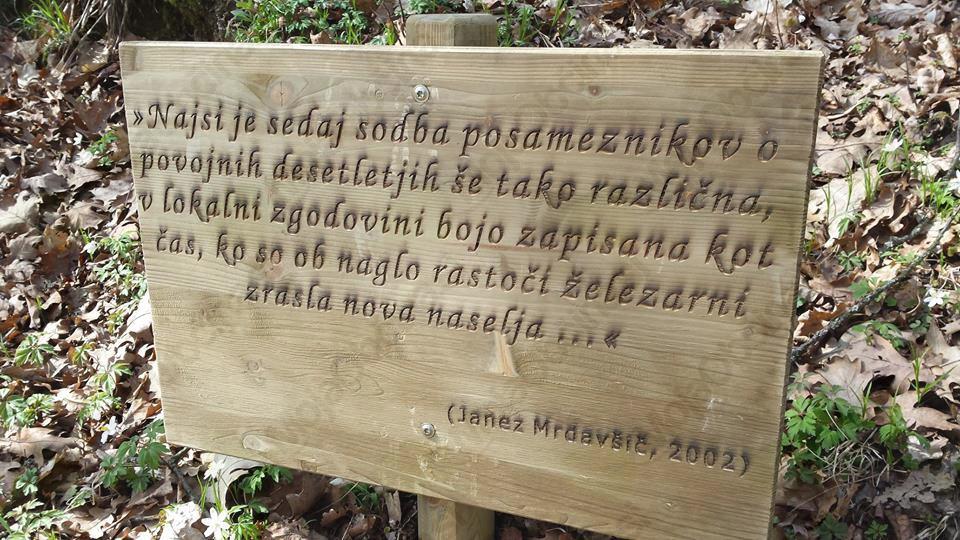 »Najsi je sedaj sodba posameznikov o
povojnih desetletjih še tako različna,
v lokalni zgodovini bojo zapisana kot
čas, ko so ob naglo rastoči železarni
zrasla nova naselja ...«
(Janez Mrdavšič, 2002)